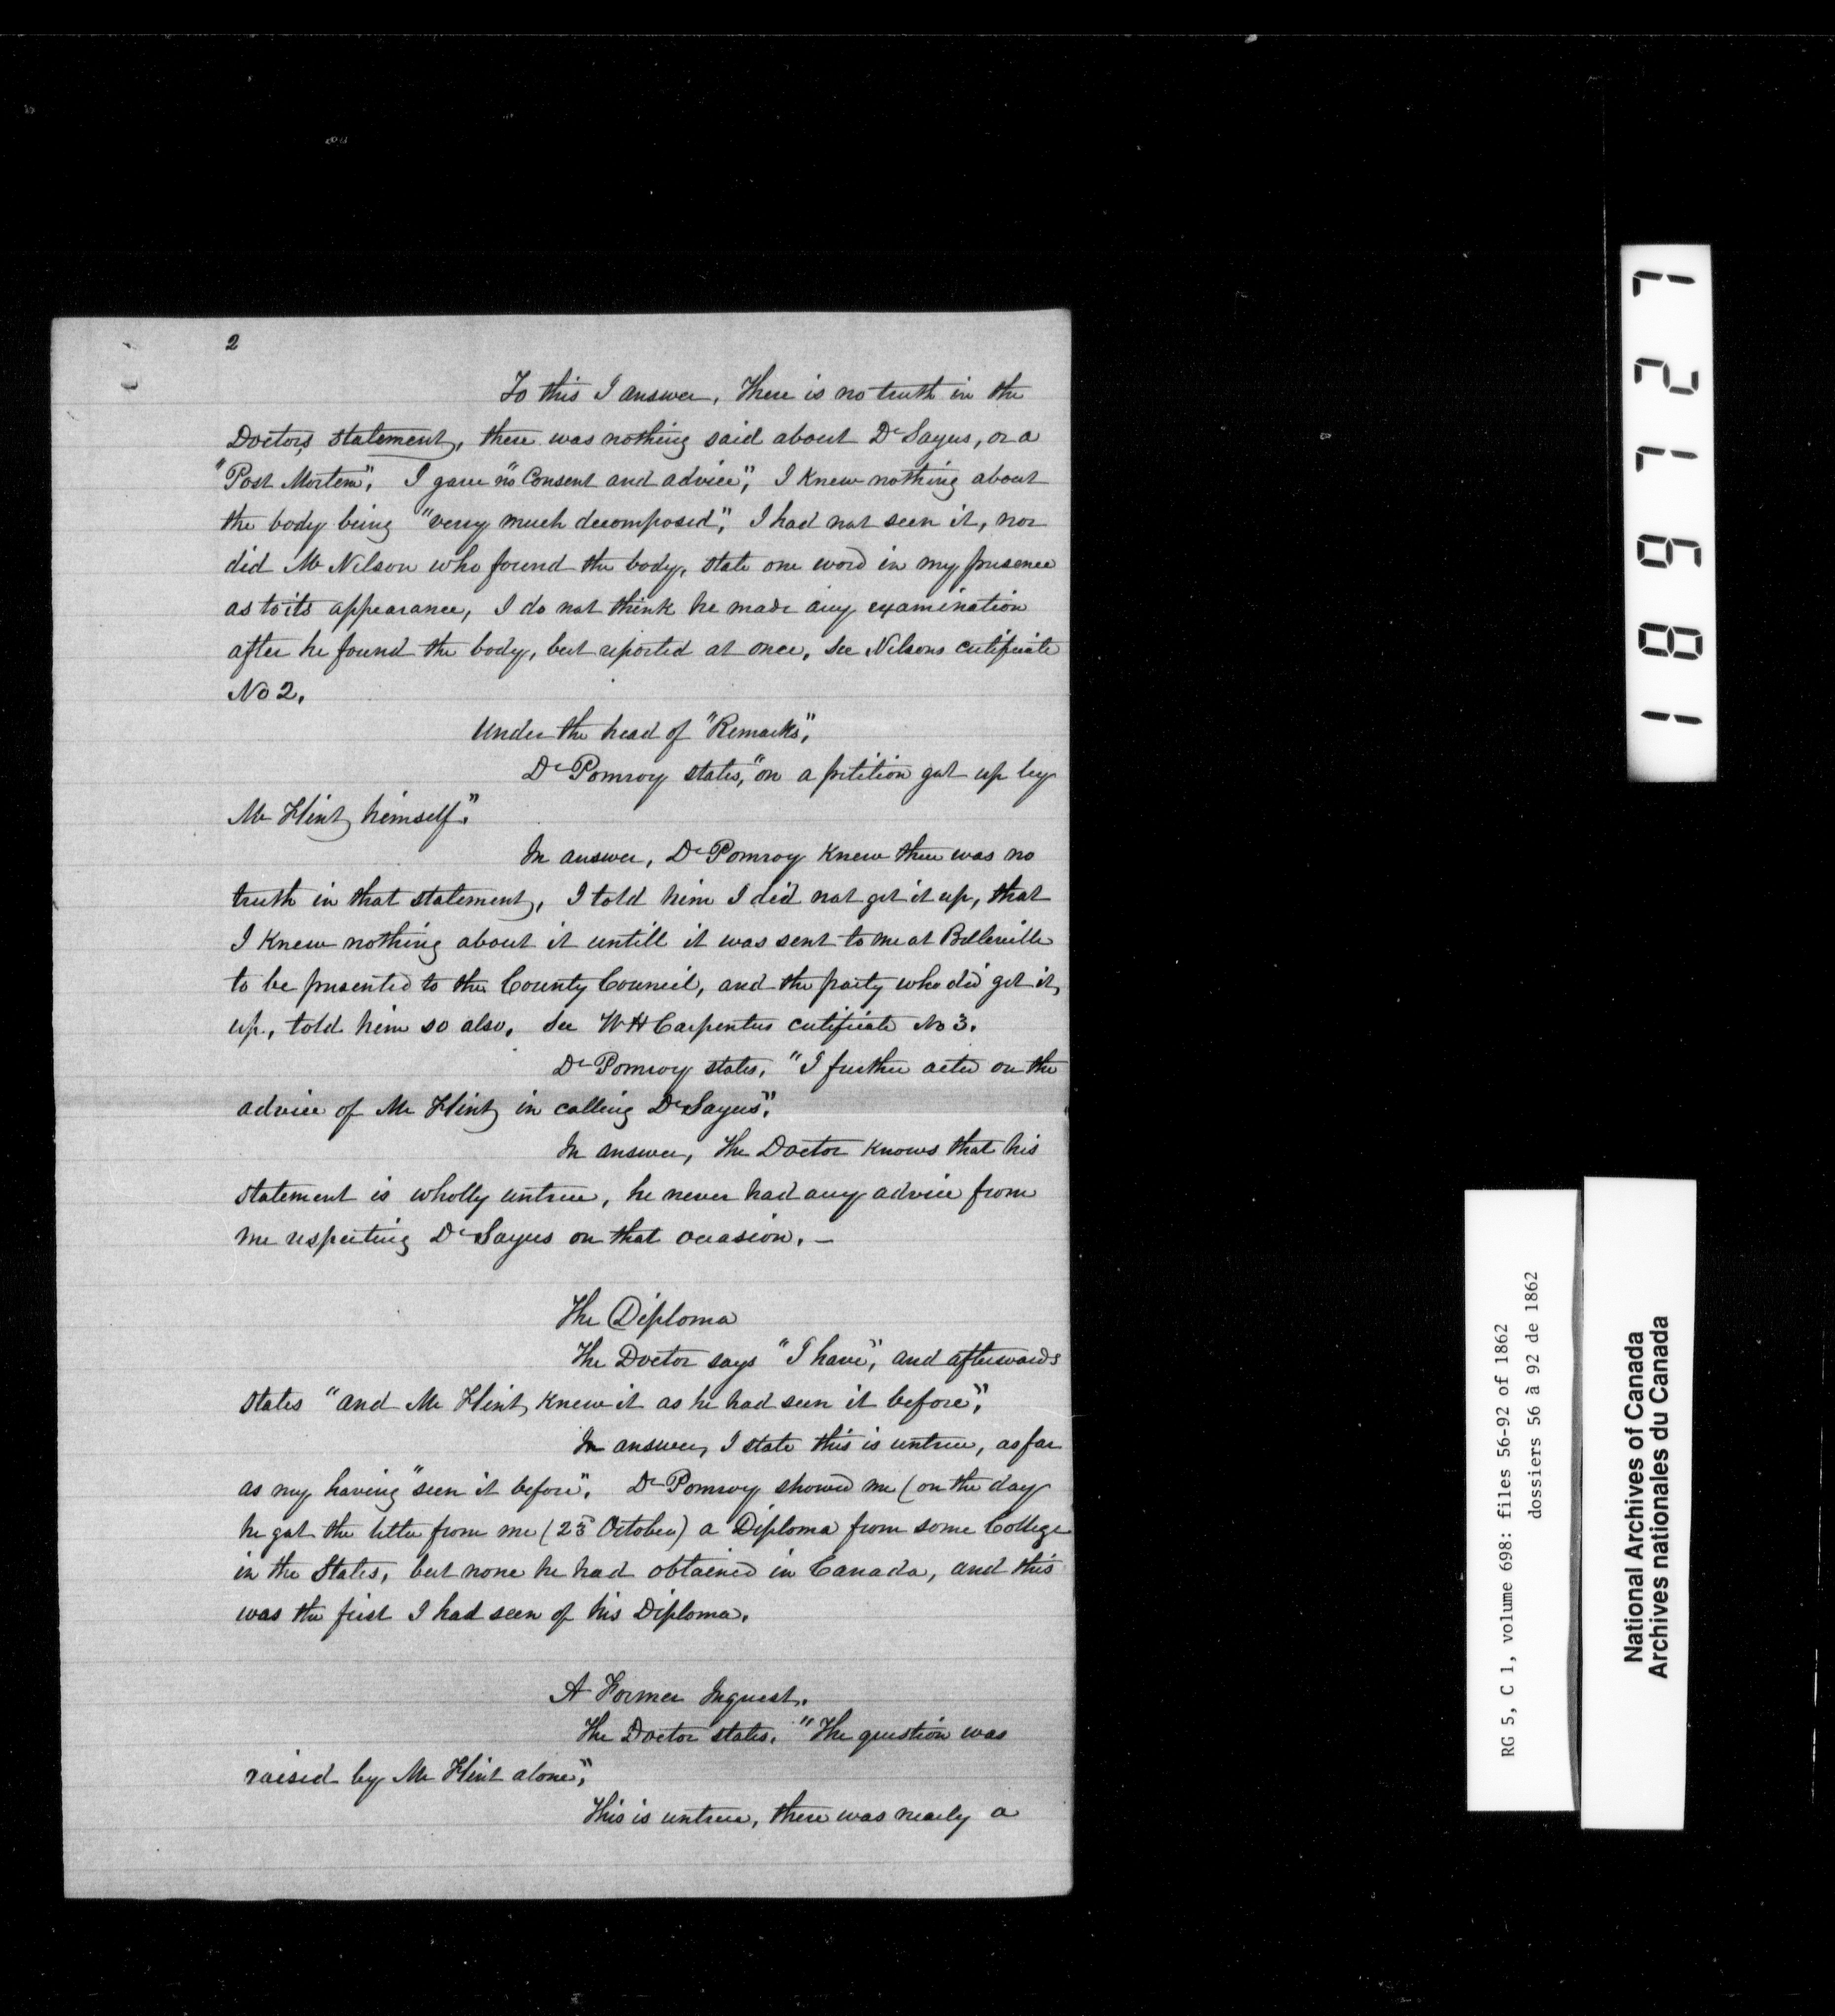 2
To this I answer, There is no truth in the
Doctors statement, there was nothing said about Dr Sayers, or a
"Post Mortem", I gave "no Consent and advice", I knew nothing about
the body being "very much decomposed", I had not seen it, nor
did Mr Nilson who found the body, state one word in my presence
as to its appearance, I do not think he made any examination
after he found the body, but reported at once, See Nilsons certificate
No 2,
Under the head of "Remarks",
Dr Pomroy states, "on a petition got up by
Mr Flint himself."
In answer, Dr Pomroy knew there was no
truth in that statement, I told him I did not get it up, that
I knew nothing about it untill it was sent to me at Belleville
to be presented to the County Council, and the party who did get it
up, told him so also, See W H Carpenters certificate No 3.
Dr Pomroy states, "I further acted on the
advice of Mr Flint in calling Dr Sayers",
In answer, The Doctor knows that his
statement is wholly untrue, he never had any advice from
me respecting Dr Sayers on that occasion. —
The Diploma
The Doctor says "I have", and afterwards
states "and Mr Flint knew it as he had seen it before",
In answer, I state this is untrue, as far
as my having "seen it before", Dr Pomroy showed me (on the day
he got the letter from me (23 October) a Diploma from some College
in the States, but none he had obtained in Canada, and this
was the first I had seen of his Diploma.
A Former Inquest.
The Doctor states, "The question was
raised by Mr Flint alone",
This is untrue, there was nearly a
189727
RG 5, C 1, volume 698: files 56-92 of 1862
dossiers 56 à 92 de 1862
National Archives of Canada
Archives nationales du Canada